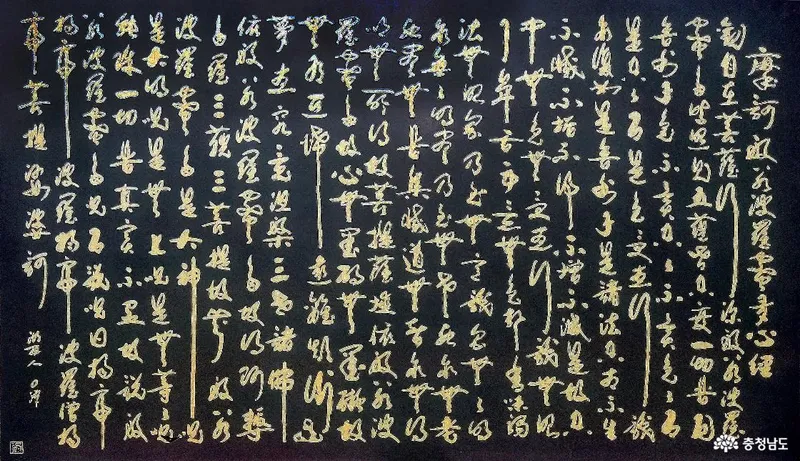 摩訶般若波羅蜜多心經
觀自在菩薩行深般若波羅
蜜多時照見五蘊皆空度一切苦厄
舍利子色不異空空不異色色卽
是空空卽是色受想行識
亦復如是舍利子是諸法空相不生
不滅不垢不淨不增不減是故空
中無色無受想行識無眼
耳鼻舌身意無色聲香味觸
法無眼界乃至無意識界無無明
亦無無明盡乃至無老死亦無老
死盡無苦集滅道無智亦無得
以無所得故菩提薩埵依般若波
羅蜜多故心無罣碍無罣碍故
無有恐怖遠離顚倒
夢想究竟涅槃三世諸佛
依般若波羅蜜多故得阿耨
多羅三藐三菩提故知般若
波羅蜜多是大神呪
是大明呪是無上呪是無等等呪
能除一切苦眞實不虛故說般
若波羅蜜多呪卽說呪曰揭帝
揭帝波羅揭帝波羅僧揭
帝菩提娑婆訶
충청남도